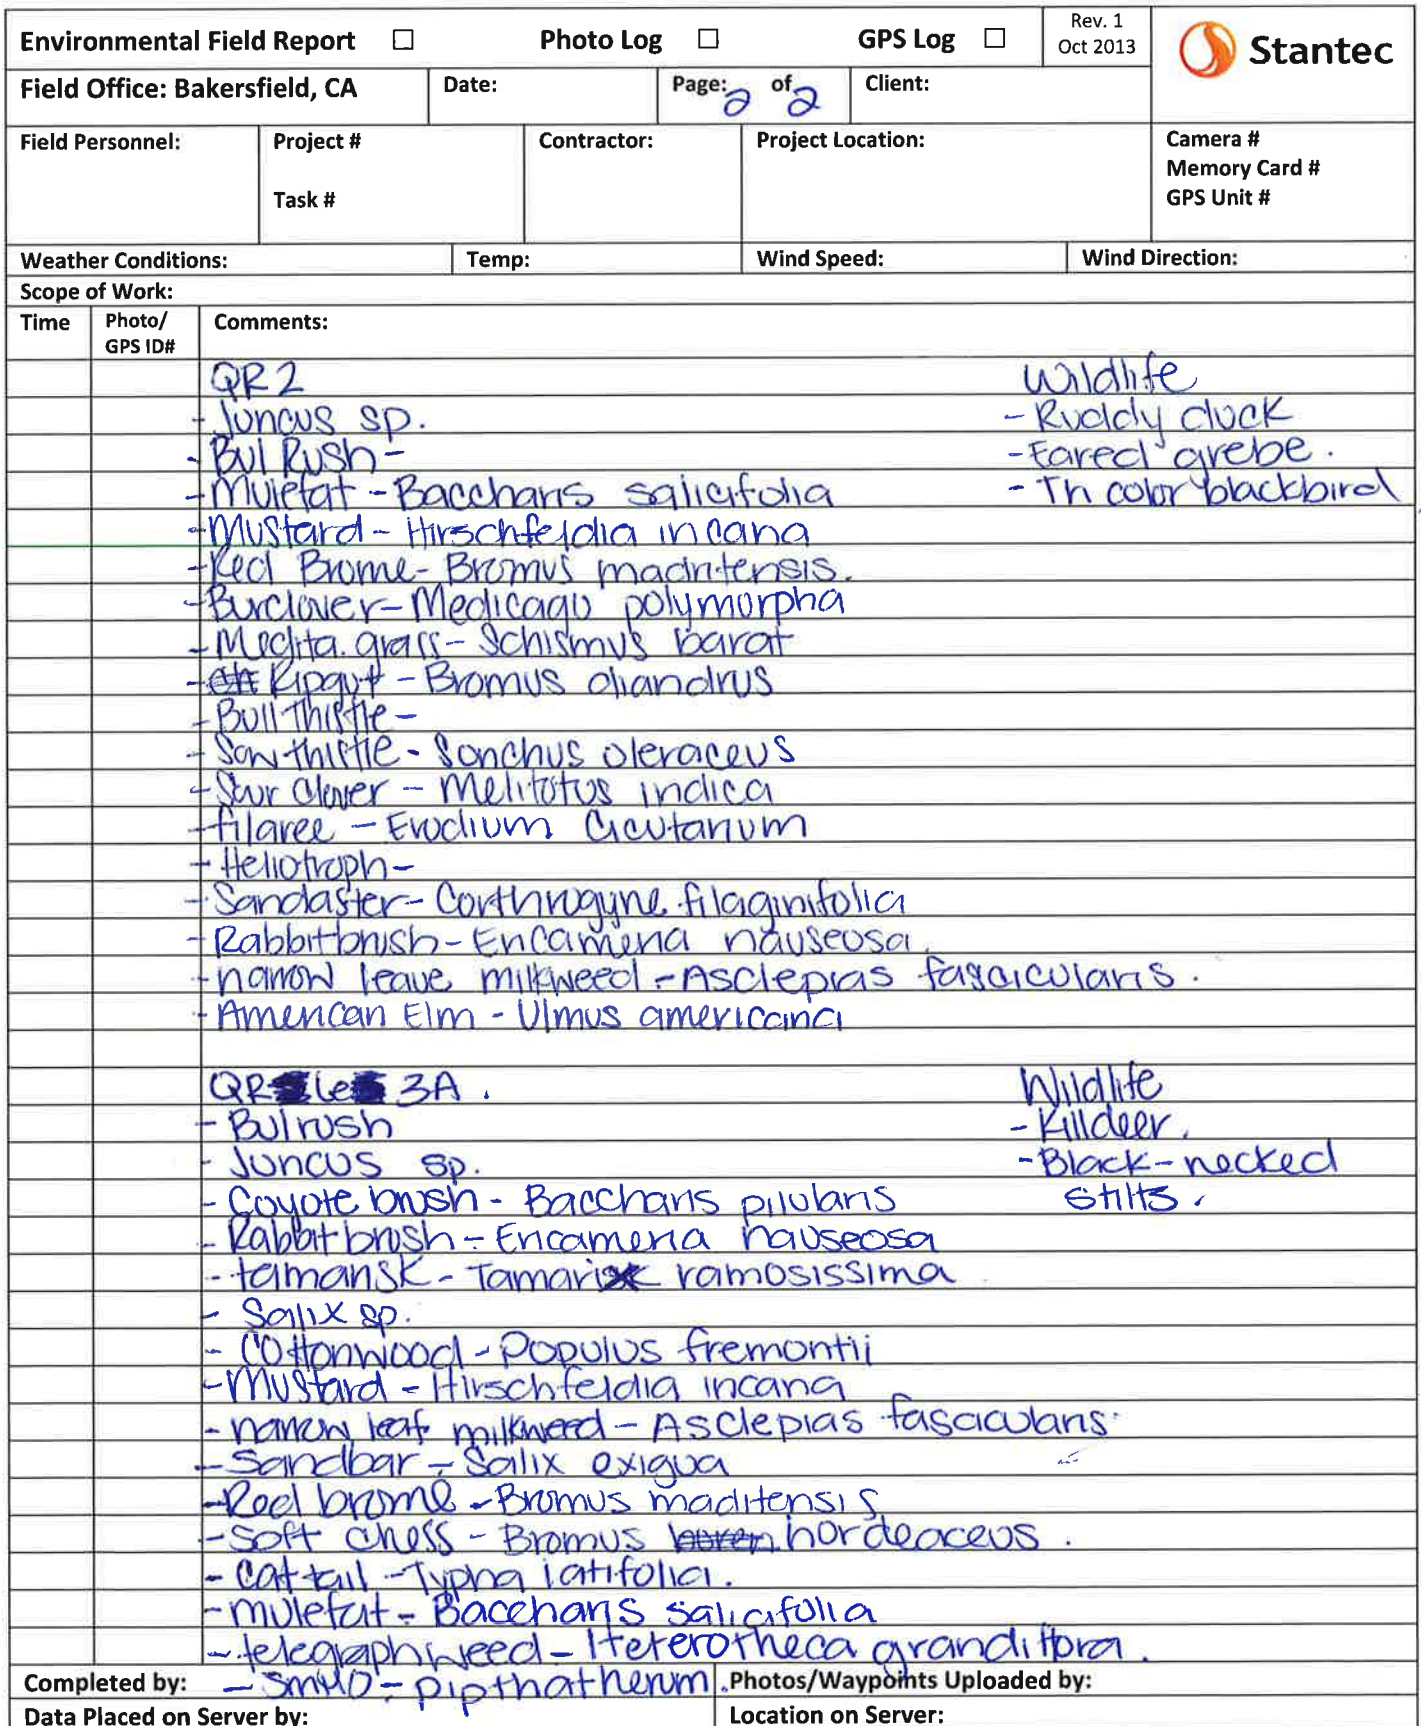 Environmental Field Report ☐ Photo Log ☐ GPS Log ☐ Rev. 1 Oct 2013 Stantec
Field Office: Bakersfield, CA Date: Page: 2 of 2 Client:
Field Personnel: Project # Contractor: Project Location: Camera #
Memory Card #
Task # GPS Unit #
Weather Conditions: Temp: Wind Speed: Wind Direction:
Scope of Work:
Time Photo/ GPS ID# Comments:
QR2 Wildlife
- Juncus sp. - Ruddy duck
- Bul Rush - - Eared grebe.
- Mulefat - Baccharis salicifolia - Tri color blackbird
- Mustard - Hirschfeldia incana
- Red Brome - Bromus madritensis.
- Burclover - Medicago polymorpha
- Medita. grass - Schismus barat
- Ripgut - Bromus diandrus
- Bull Thistle -
- Sow thistle - Sonchus oleraceus
- Sour Clover - Melitotus indica
- filaree - Erodium Cicutarium
- Heliotroph -
- Sandaster - Corthrogyne filaginifolia
- Rabbitbrush - Encameria nauseosa.
- narrow leave milkweed - Asclepias fascicularis.
- American Elm - Ulmus americana
QR 3A. Wildlife
- Bulrush - Killdeer.
- Juncus sp. - Black-necked
- Coyote brush - Baccharis pilularis stilts.
- Rabbit brush - Encameria nauseosa
- tamarisk - Tamarix ramosissima
- Salix sp.
- Cottonwood - Populus fremontii
- Mustard - Hirschfeldia incana
- narrow leaf milkweed - Asclepias fascicularis.
- Sandbar - Salix exigua
- Red brome - Bromus maditensis
- Soft chess - Bromus hordeaceus.
- Cat tail - Typha latifolia.
- mulefat - Baccharis salicifolia
- telegraph weed - Heterotheca grandiflora.
Completed by: - Smilo - pipthatherum. Photos/Waypoints Uploaded by:
Data Placed on Server by: Location on Server: